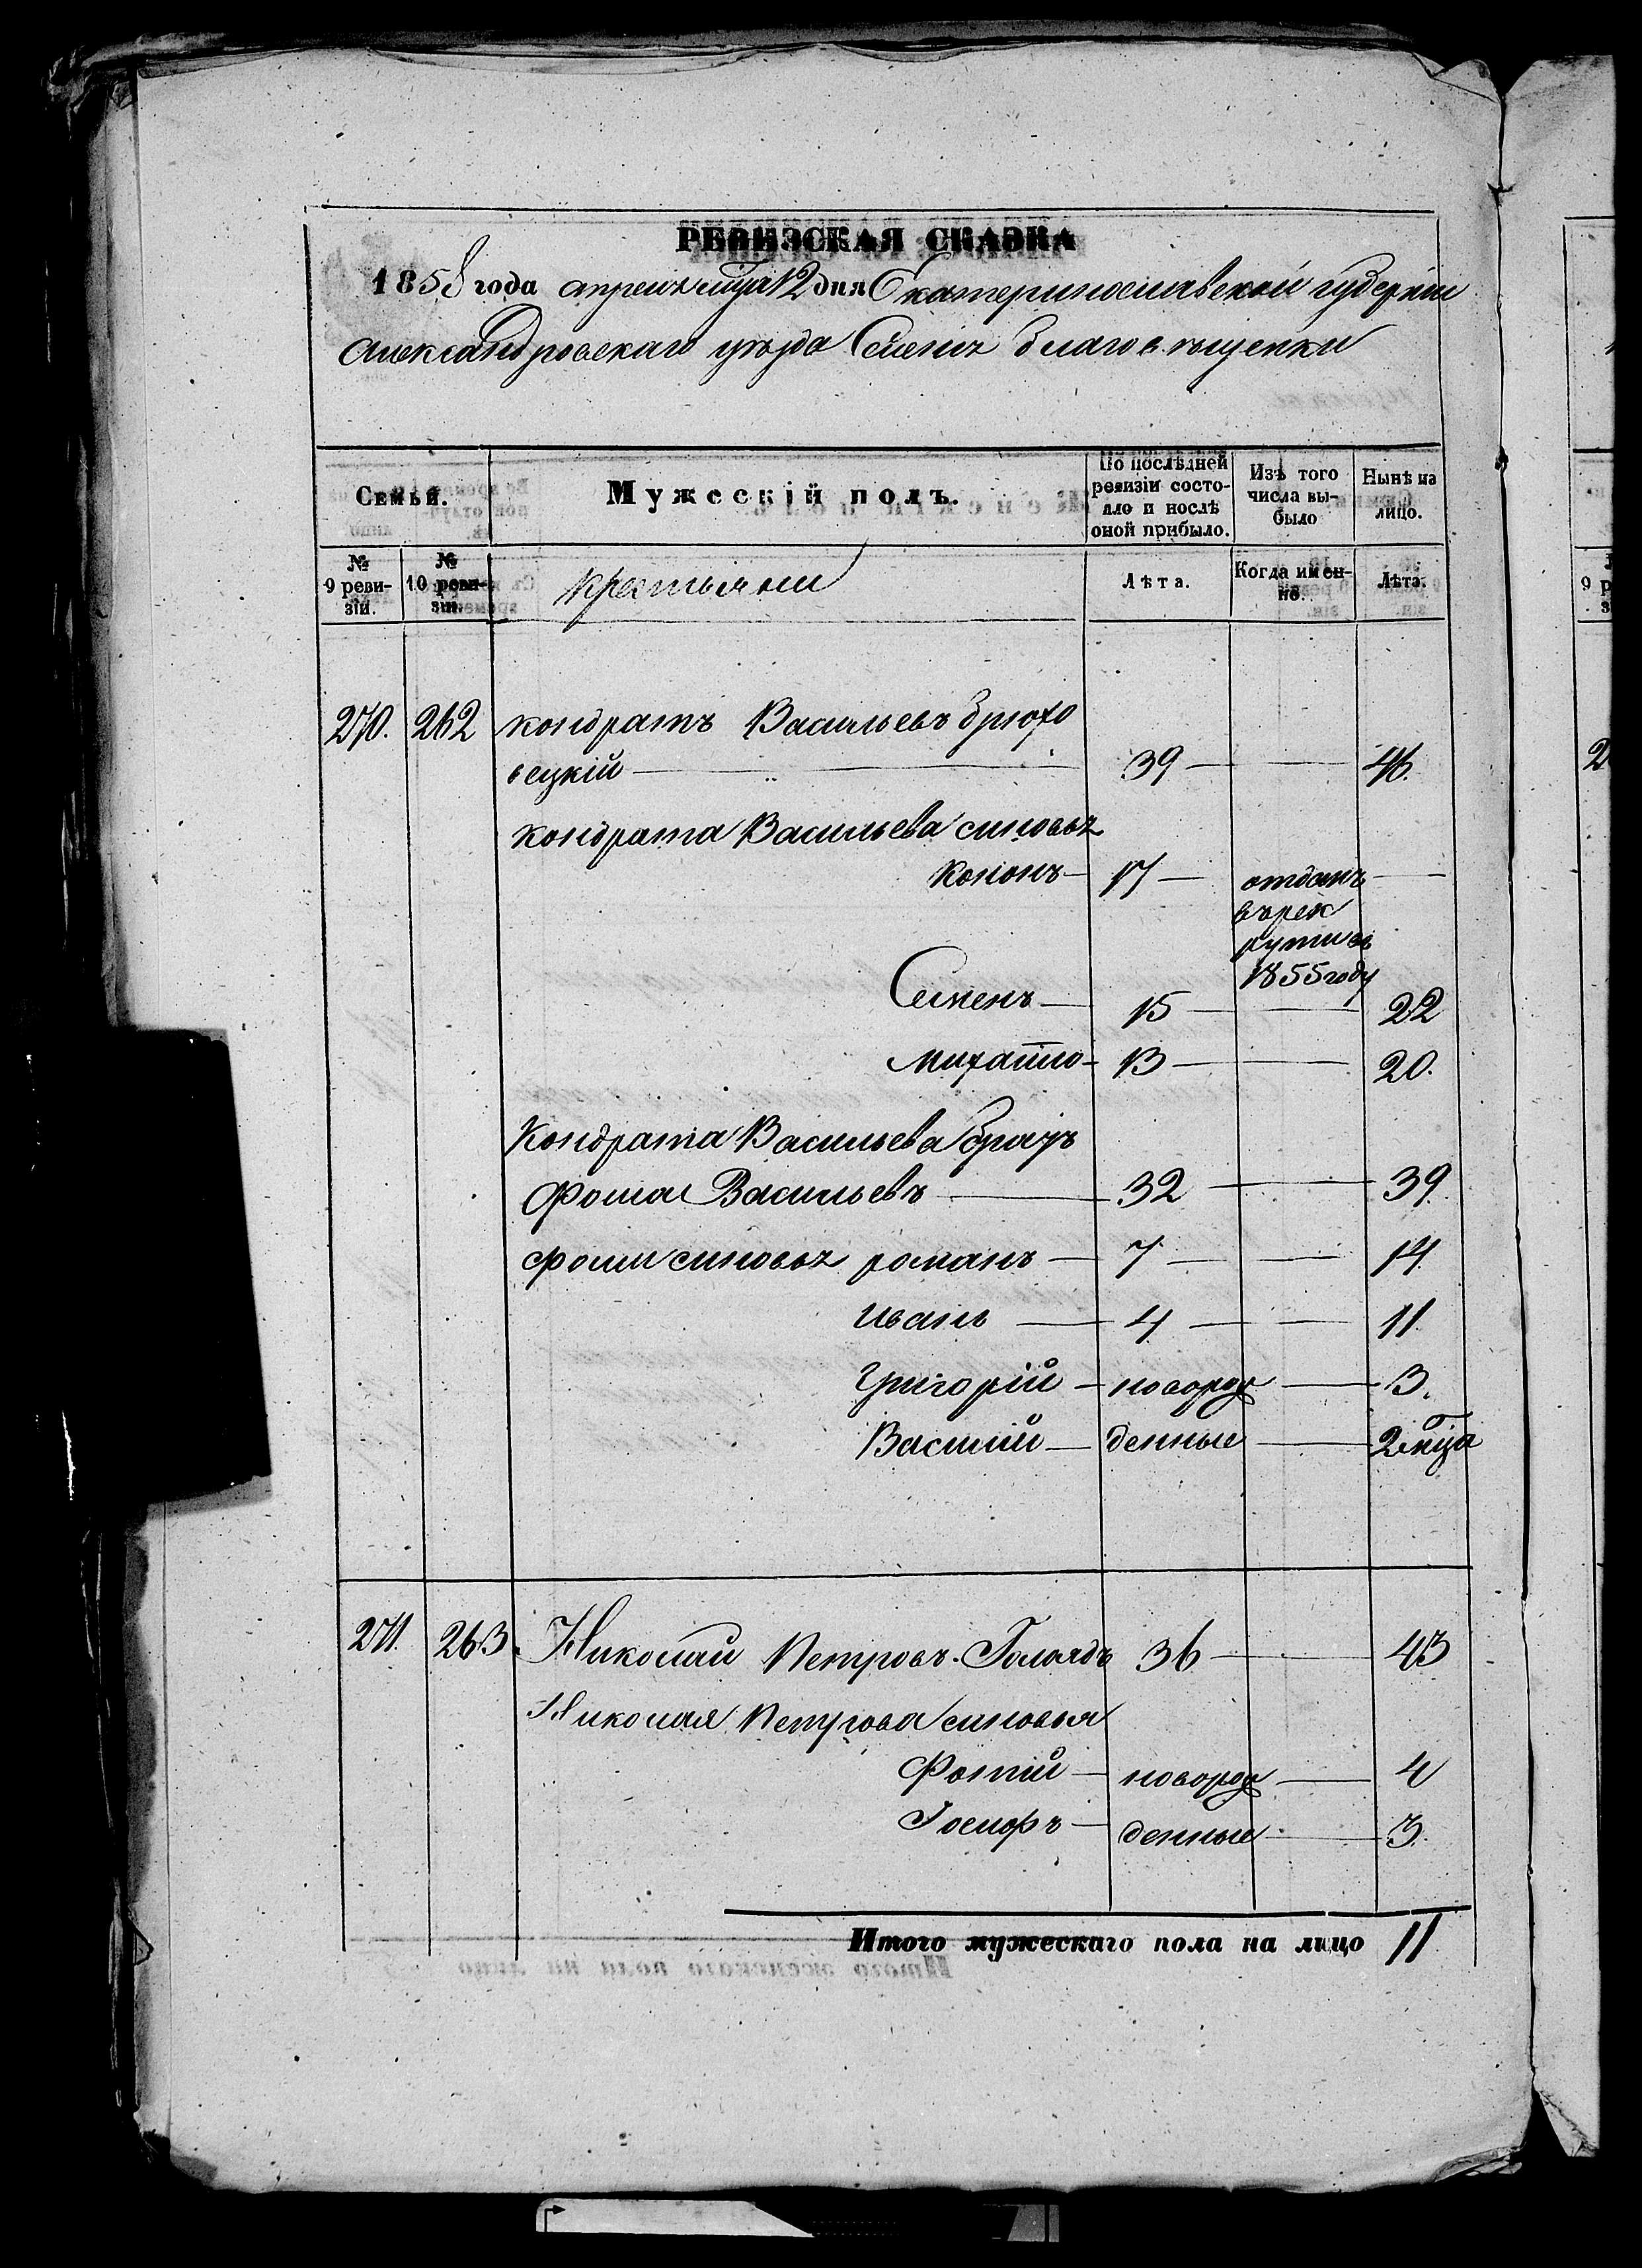 РЕВИЗСКАЯ СКАЗКА
1858 года апреля мца 12 дня Екатеринославской губернии
Александровскаго уѣзда Селенія благовѣщенки
Семьи.
Мужескій полъ.
По послѣдней ревизіи состояло и послѣ оной прибыло.
Изъ того числа выбыло
Нынѣ на лицо.
№ 9 ревизіи.
№ 10 ревизіи.
крестьяни
Лѣта.
Когда именно.
Лѣта.
270. 262 кондратъ Васильевъ брюхо
вецкій 39 46.
кондрата Васильева синовья
кононъ 17 отданъ
въ рек
рути въ
1855 году
Семенъ 15 22
михайло 13 20.
Кондрата Васильева братъ
Фома Васильевъ 32 39.
Фоми синовья романъ 7 14
иванъ 4 11.
Григорій новорож 3.
Василій денные 2 мца
271. 263. Николай Петровъ Голядъ 36 43
Николая Петрова синовья
Фотій новорож 4
Іосифъ денные 3.
Итого мужескаго пола на лицо 11